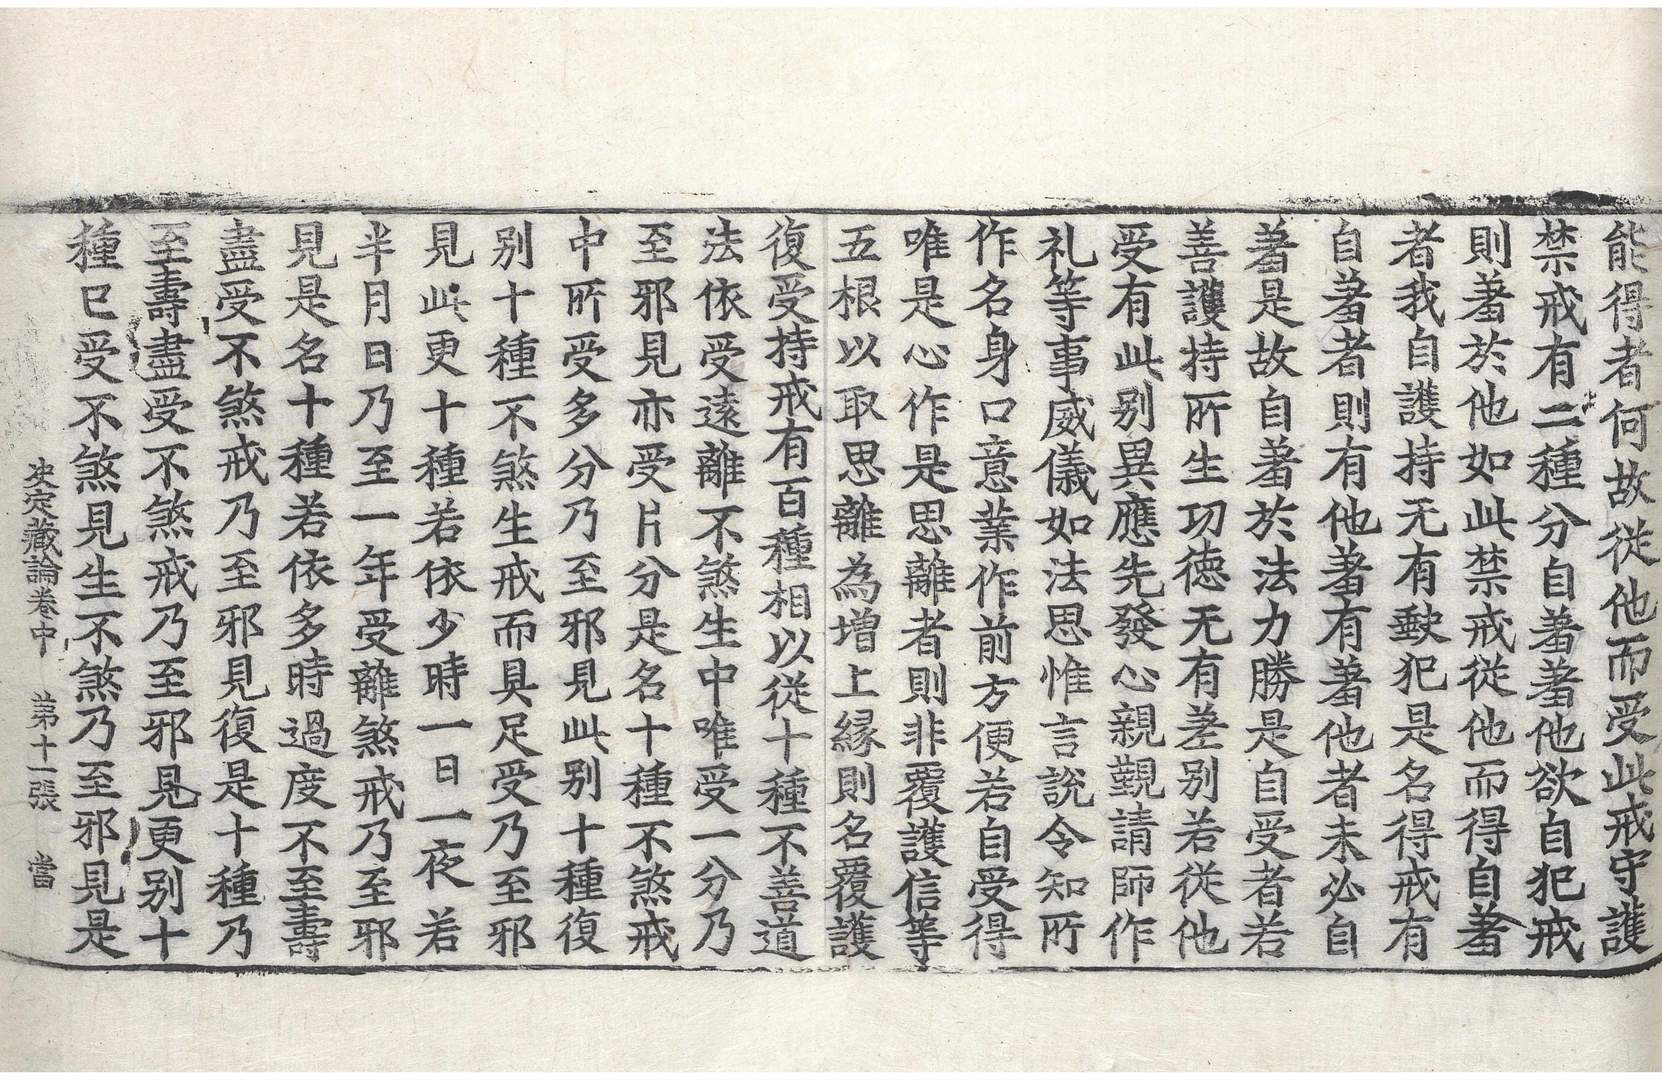 能得者何故從他而受此戒守護
禁戒有二種分自羞羞他欲自犯戒
則羞於他如此禁戒從他而得自羞
者我自護持无有缺犯是名得戒有
自羞者則有他羞有羞他者未必自
羞是故自羞於法力勝是自受者若
善護持所生功德无有差別若從他
受有此別異應先發心親覲請師作
礼等事威儀如法思惟言說令知所
作名身口意業作前方便若自受得
唯是心作是思離者則非覆護信等
五根以取思離為增上緣則名覆護
復受持戒有百種相以從十種不善道
法依受遠離不煞生中唯受一分乃
至邪見亦受片分是名十種不煞戒
中所受多分乃至邪見此別十種復
別十種不煞生戒而具足受乃至邪
見此更十種若依少時一日一夜若
半月日乃至一年受離煞戒乃至邪
見是名十種若依多時過度不至壽
盡受不煞戒乃至邪見復是十種乃
至壽盡受不煞戒乃至邪見更別十
種已受不煞見生不煞乃至邪見是
决定藏論卷中 第十一張 當